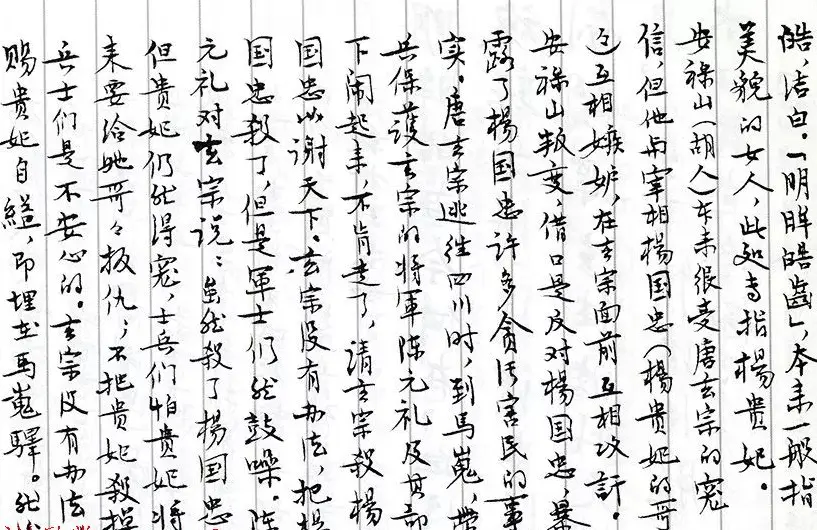 皓,洁白。「明眸皓齒」,本来一般指
美貌的女人,此处专指楊贵妃。
安禄山(胡人)本来很受唐玄宗的宠
信,但他与宰相楊国忠(楊贵妃的哥
互相嫉妒,在玄宗面前互相攻訐。
安禄山叛变,借口是反对楊国忠,暴
露了楊国忠许多贪污害民的事
实。唐玄宗逃往四川时,到馬嵬,帶
兵保護玄宗的将軍陳元礼及其部
下闹起来,不肯走了,請玄宗殺楊
国忠以謝天下。玄宗没有办法,把楊
国忠殺了,但是軍士们仍然鼓噪。陈
元礼对玄宗说:虽然殺了楊国忠
但贵妃仍然得宠,士兵们怕贵妃将
来要给她哥々报仇;不把贵妃殺掉
兵士们是不安心的。玄宗没有办法
赐贵妃自縊,即埋在馬嵬驛。然